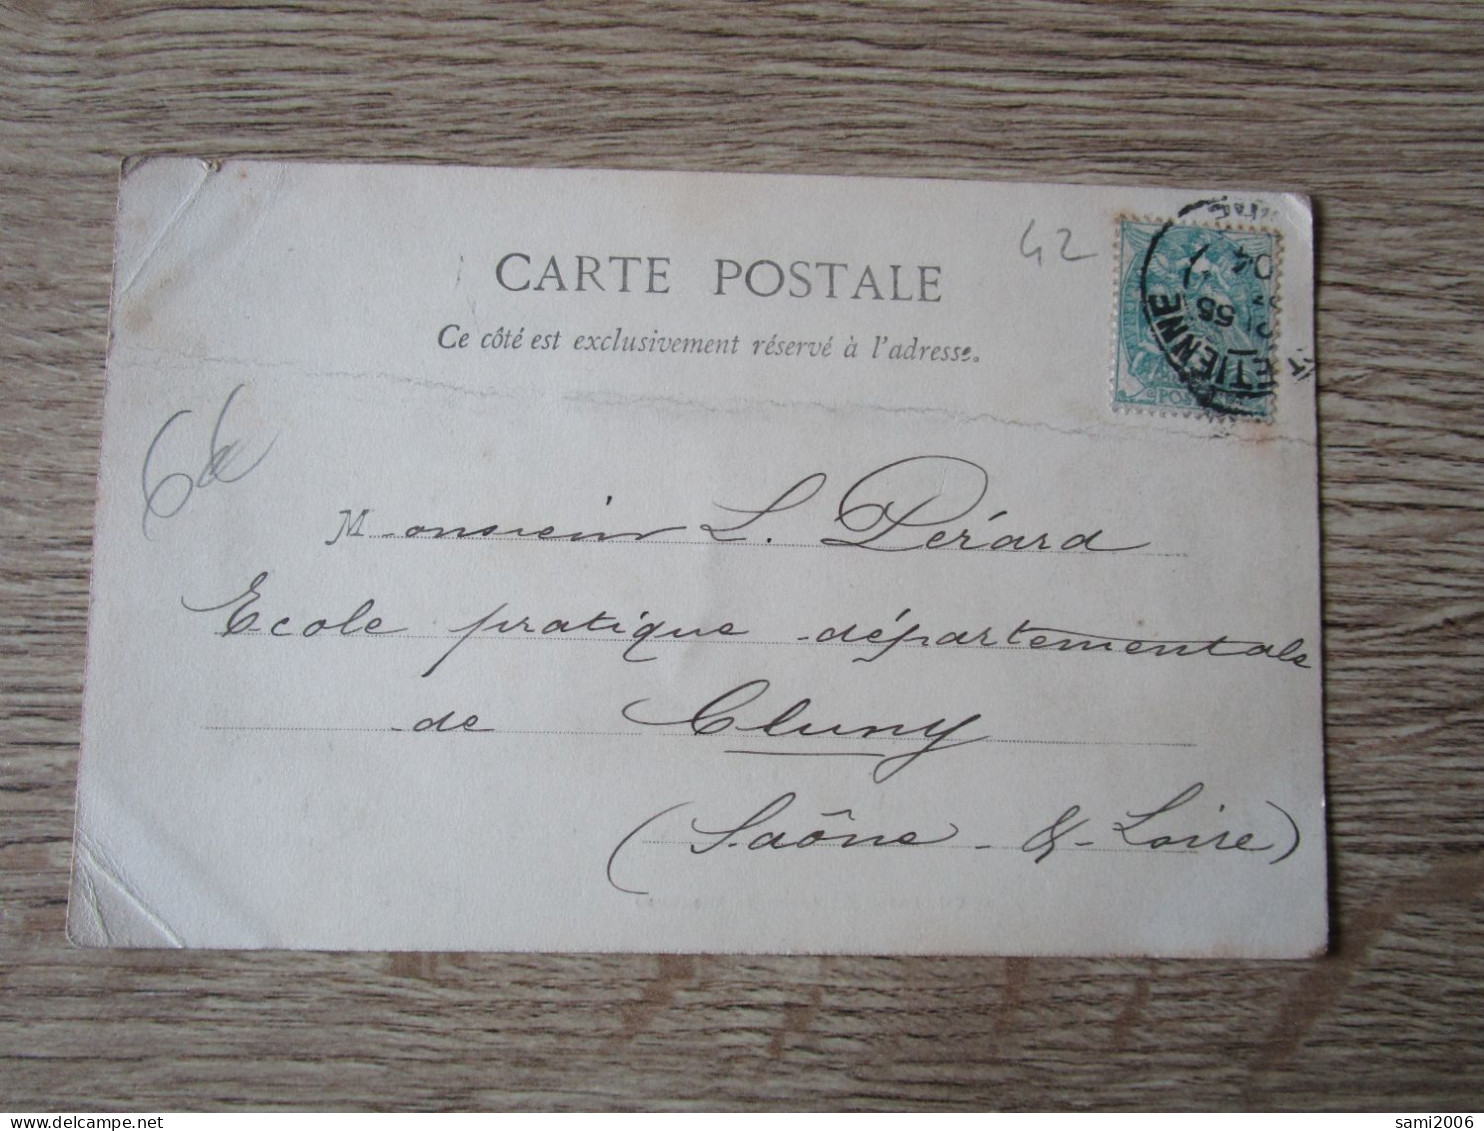 CARTE POSTALE
42
Ce côté est exclusivement réservé à l'adresse.
ETIENNE
04
POSTES
Monsieur L. Pérard
Ecole pratique départementale
de Cluny
(Saône-&-Loire)
sami2006